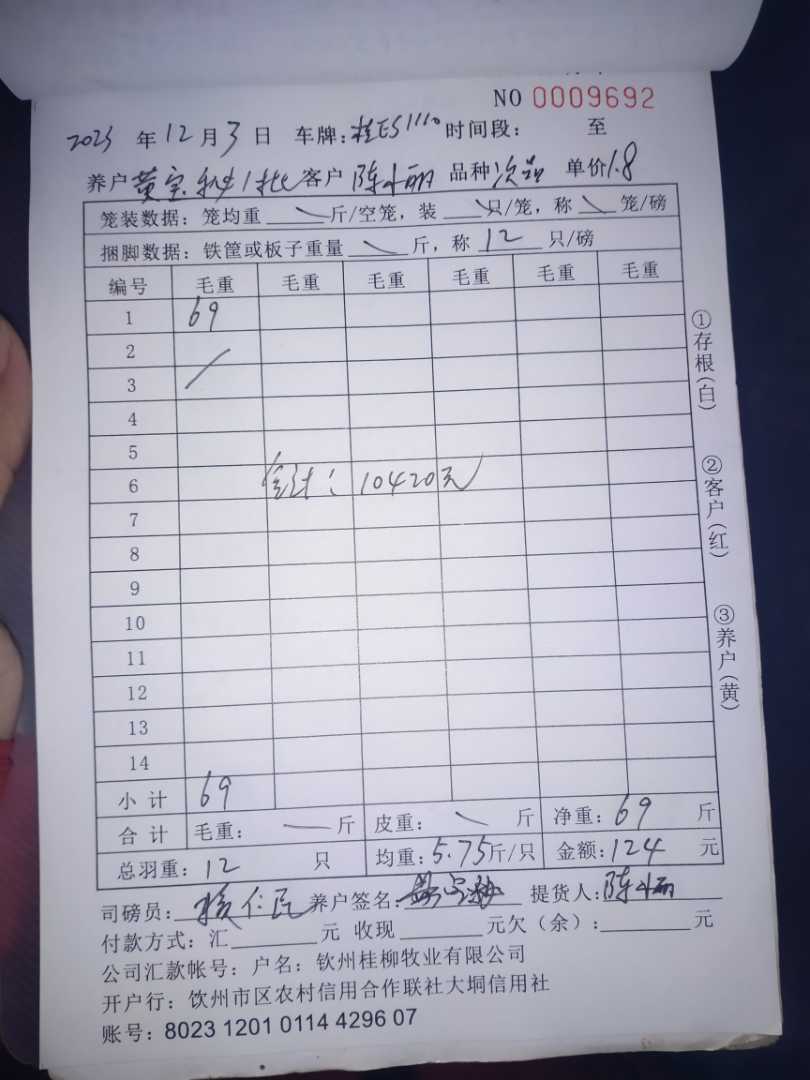 NO 0009692
2023 年 12 月 3 日 车牌:桂ES1110 时间段: 至
养户 黄宝秘1批 客户 陈小丽 品种 次品 单价 1.8
笼装数据: 笼均重 斤/空笼, 装 只/笼, 称 笼/磅
捆脚数据: 铁筐或板子重量 斤, 称 12 只/磅
编号 毛重 毛重 毛重 毛重 毛重 毛重
1 69
2
3
4
5
6 合计: 10420元
7
8
9
10
11
12
13
14
小计 69
合计 毛重: 斤 皮重: 斤 净重: 69 斤
总羽重: 12 只 均重: 5.75斤/只 金额: 124 元
司磅员: 仁民 养户签名: 提货人: 陈小丽
付款方式: 汇 元 收现 元欠(余): 元
公司汇款帐号: 户名: 钦州桂柳牧业有限公司
开户行: 饮州市区农村信用合作联社大垌信用社
账号: 8023 1201 0114 4296 07
①存根(白)
②客户(红)
③养户(黄)